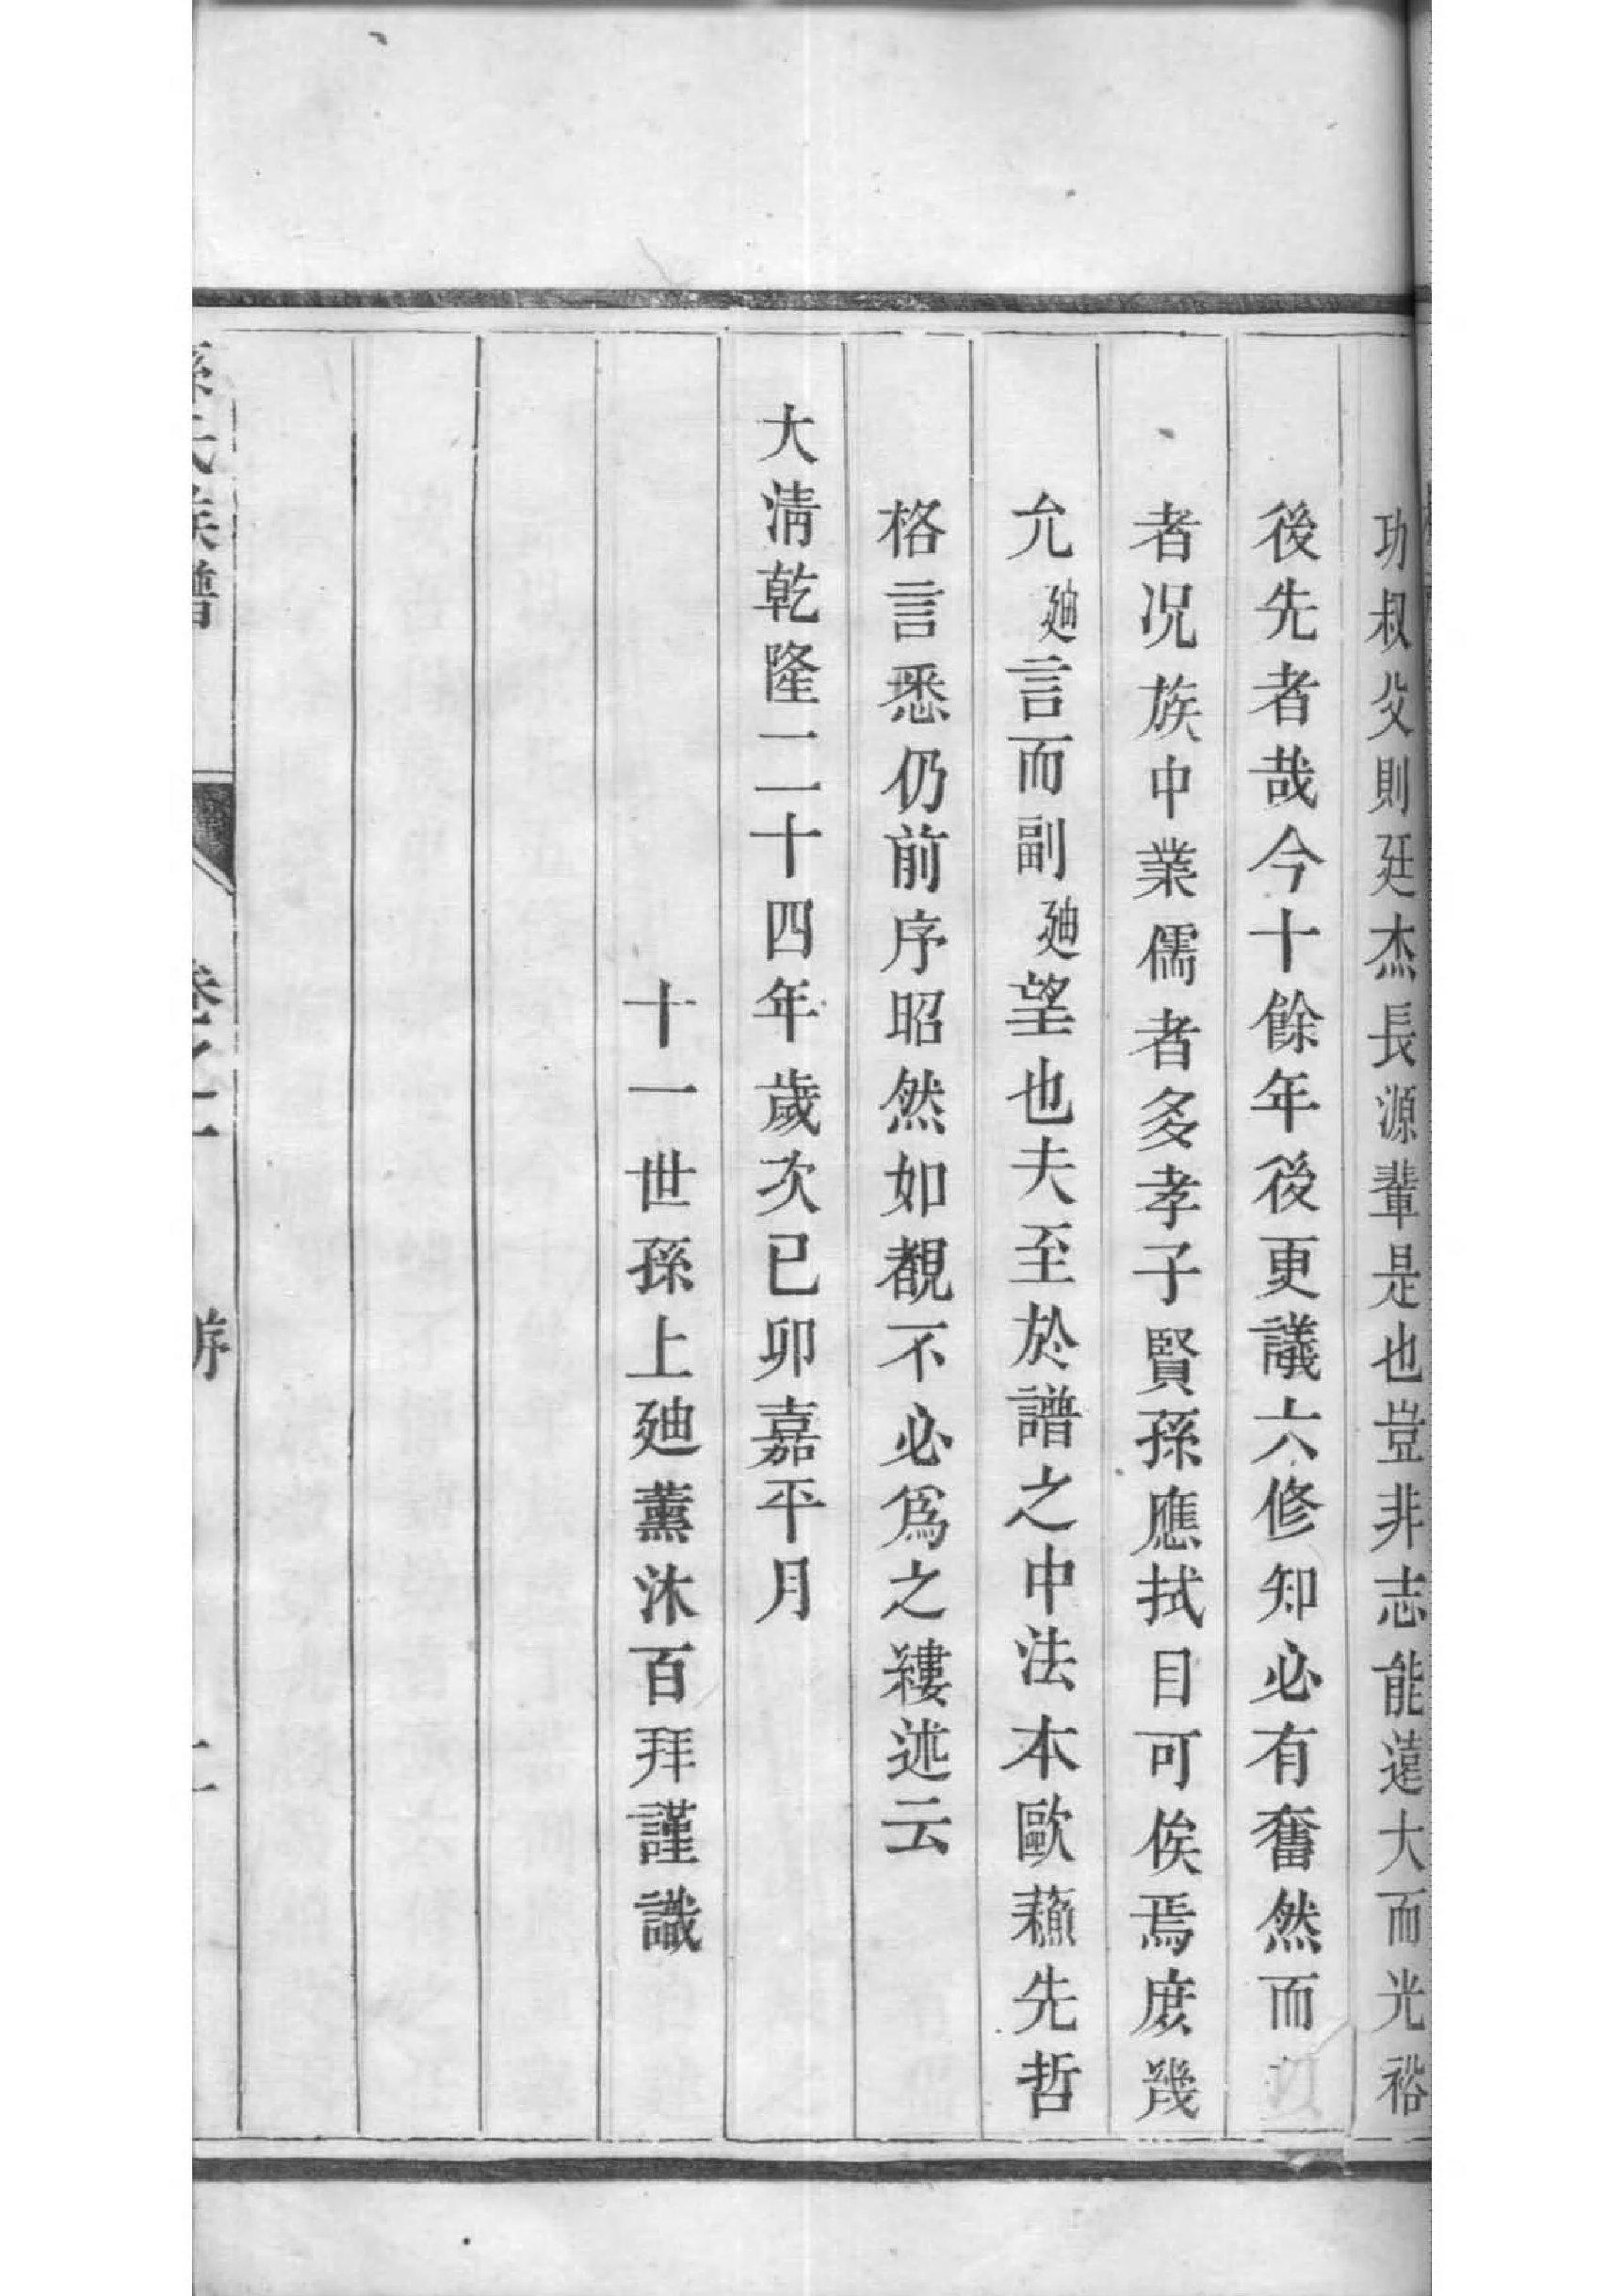 功叔父則廷杰長源輩是也豈非志能遠大而光裕
後先者哉今十餘年後更議六修知必有奮然而
者况族中業儒者多孝子賢孫應拭目可俟焉庶幾
允廸言而副廸望也夫至於譜之中法本歐蘓先哲
格言悉仍前序昭然如覩不必爲之縷述云
大清乾隆二十四年歲次已卯嘉平月
十一世孫上廸薰沐百拜謹識
孫氏族譜